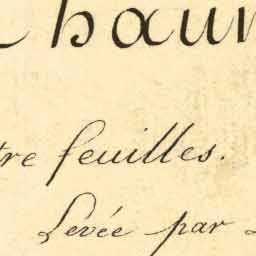 Chaum
tre feuilles.
Levée par